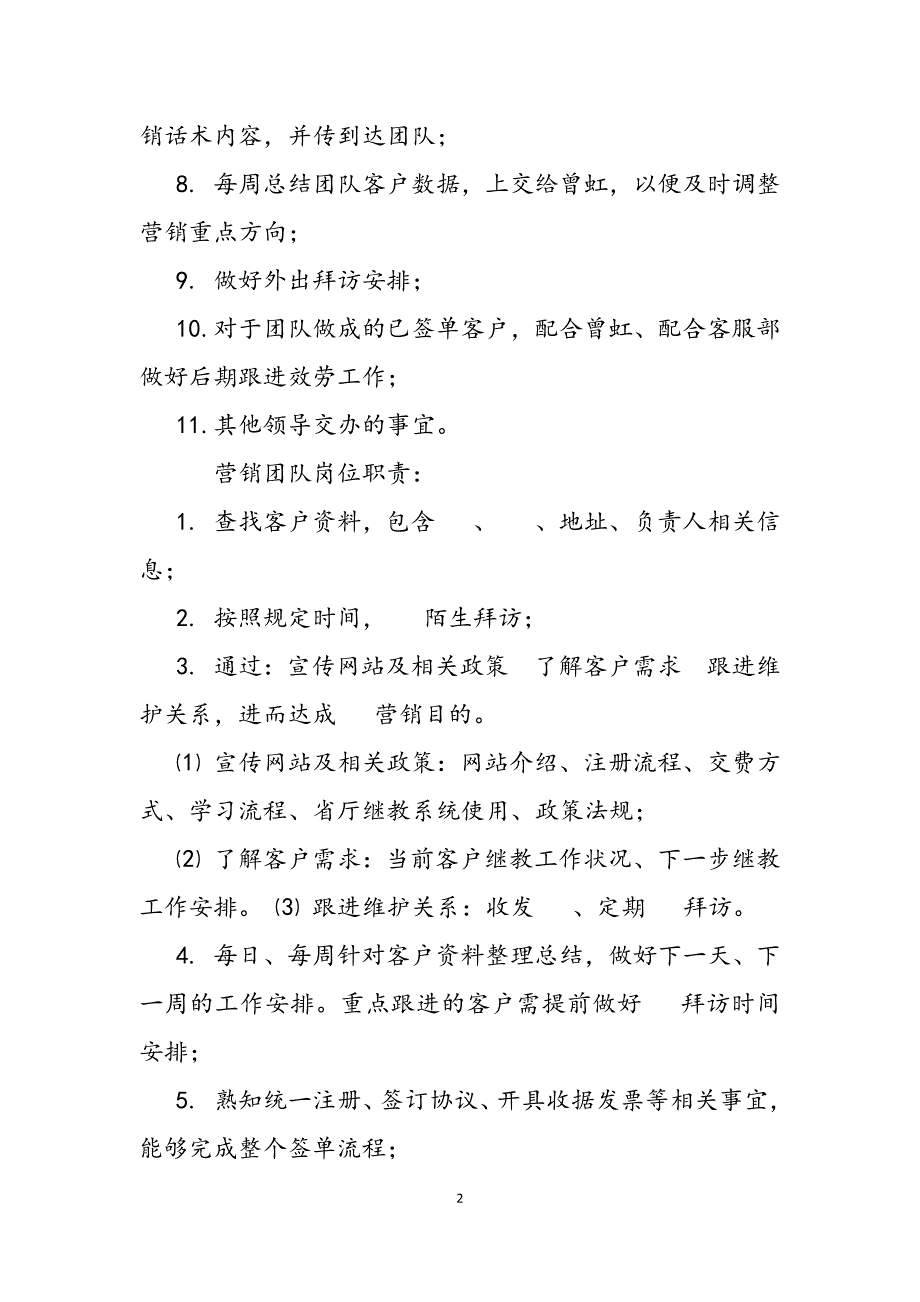 销话术内容，并传到达团队；
8. 每周总结团队客户数据，上交给曾虹，以便及时调整
营销重点方向；
9. 做好外出拜访安排；
10.对于团队做成的已签单客户，配合曾虹、配合客服部
做好后期跟进效劳工作；
11.其他领导交办的事宜。
营销团队岗位职责：
1. 查找客户资料，包含 、 、地址、负责人相关信
息；
2. 按照规定时间， 陌生拜访；
3. 通过：宣传网站及相关政策 了解客户需求 跟进维
护关系，进而达成 营销目的。
⑴ 宣传网站及相关政策：网站介绍、注册流程、交费方
式、学习流程、省厅继教系统使用、政策法规；
⑵ 了解客户需求：当前客户继教工作状况、下一步继教
工作安排。⑶ 跟进维护关系：收发 、定期 拜访。
4. 每日、每周针对客户资料整理总结，做好下一天、下
一周的工作安排。重点跟进的客户需提前做好 拜访时间
安排；
5. 熟知统一注册、签订协议、开具收据发票等相关事宜，
能够完成整个签单流程；
2